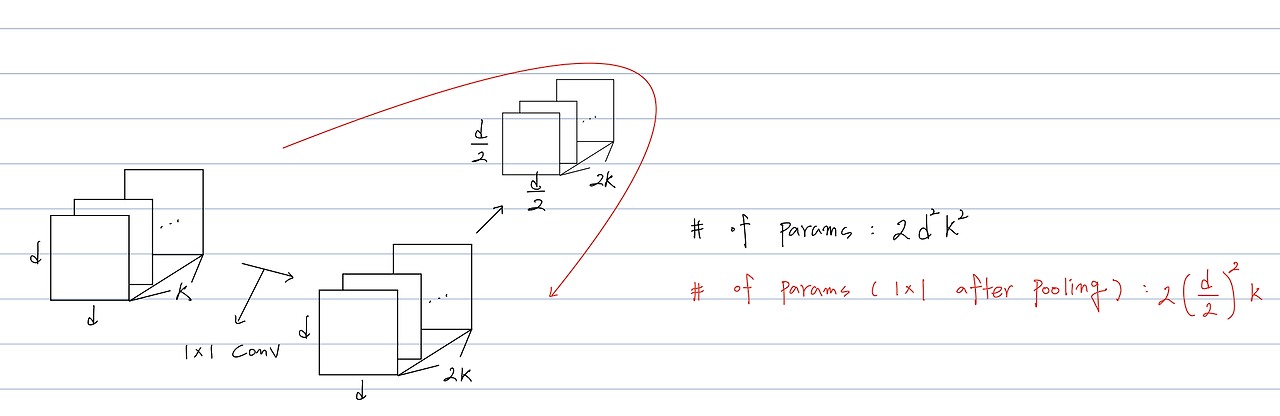 d
d
K
1x1 conv
d
d
2K
d/2
d/2
2K
...
...
...
# of params : 2d²k²
# of params (1x1 after pooling) : 2(d/2)²k